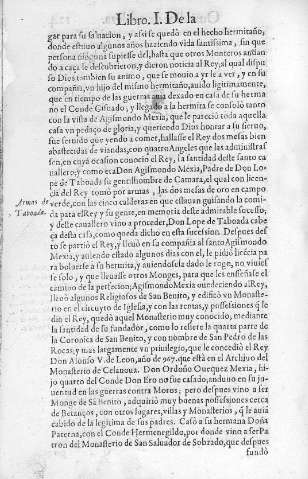 Libro. I. De la
gar para su saluacion, y assi se quedò en el hecho hermitaño,
donde estuuo algunos años haziendo vida santissima, sin que
persona ninguna supiesse del, hasta que otros Monteros andan
do a caça le descubrieron, y dieron noticia al Rey, al qual dispu
so Dios tambien su animo, que se mouio a yr le a ver, y en su
compañia, vn hijo del mismo hermitaño, auido legitimamente,
que en tiempo de las guerras auia dexado en casa de su herma
no el Conde Gisuado, y llegado a la hermita se consolò tanto
con la vista de Agismondo Mexia, que le pareciò toda aquella
casa vn pedaço de gloria, y queriendo Dios honrar a su sieruo,
fue seruido que yendo a comer, hallasse el Rey dos mesas bien
abastecidas de viandas, con quatro Angeles que las administras
sen, en cuya ocasion conocio el Rey, la santidad deste santo ca
uallero; y como era Don Agismondo Mexia, Padre de Don Lo-
pe de Taboada su gentilhombre de Camara, el qual con licen-
cia del Rey tomò por armas, las dos mesas de oro en campo
Armas de
Taboada.
verde, con las cinco calderas en que estauan guisando la comi-
da para el Rey y su gente, en memoria deste admirable sucesso,
y deste cauallero vino a proceder, Don Lope de Taboada cabe
ça desta casa, como queda dicho en esta sucession. Despues des
to se partiò el Rey, y lleuò en su compañia al santo Agismondo
Mexia, y auiendo estado algunos dias con el, le pidiò licecia pa
ra boluerse a su hermita, y auiendosela dado le rogò, no viuies
se solo, y que lleuasse otros Monges, para que les enseñasse el
camino de la perfecion; Agismondo Mexia obedeciendo al Rey,
lleuò algunos Religiosos de San Benito, y edificò vn Monaste-
rio en el circuyto de Iglesia, y con las rentas, y possessiones q̃ le
dio el Rey, quedò aquel Monasterio muy conocido, mediante
la santidad de su fundador, como lo refiere la quarta parte de
la Coronica de San Benito, y con nombre de San Pedro de las
Rocas; y mas largamente vn priuilegio, que le concediò el Rey
Don Alonso V. de Leon, año de 967. que està en el Archiuo del
Monasterio de Celanoua. Don Ordoño Ouequez Mexia, hi-
jo quarto del Conde Don Ero no fue casado, anduuo en su ju-
uentud en las guerras contra Moros; pero despues vino a ser
Monge de Sã Benito, adquiriò muy buenas possessiones cerca
de Betanços, con otros lugares, villas y Monasterios, q̃ le auia
cabido de la legitima de sus padres. Casò a su hermana Doña
Paterna, con el Conde Hermenegildo, por donde vino a ser Pa
tron del Monasterio de San Saluador de Sobrado, que despues
fundò